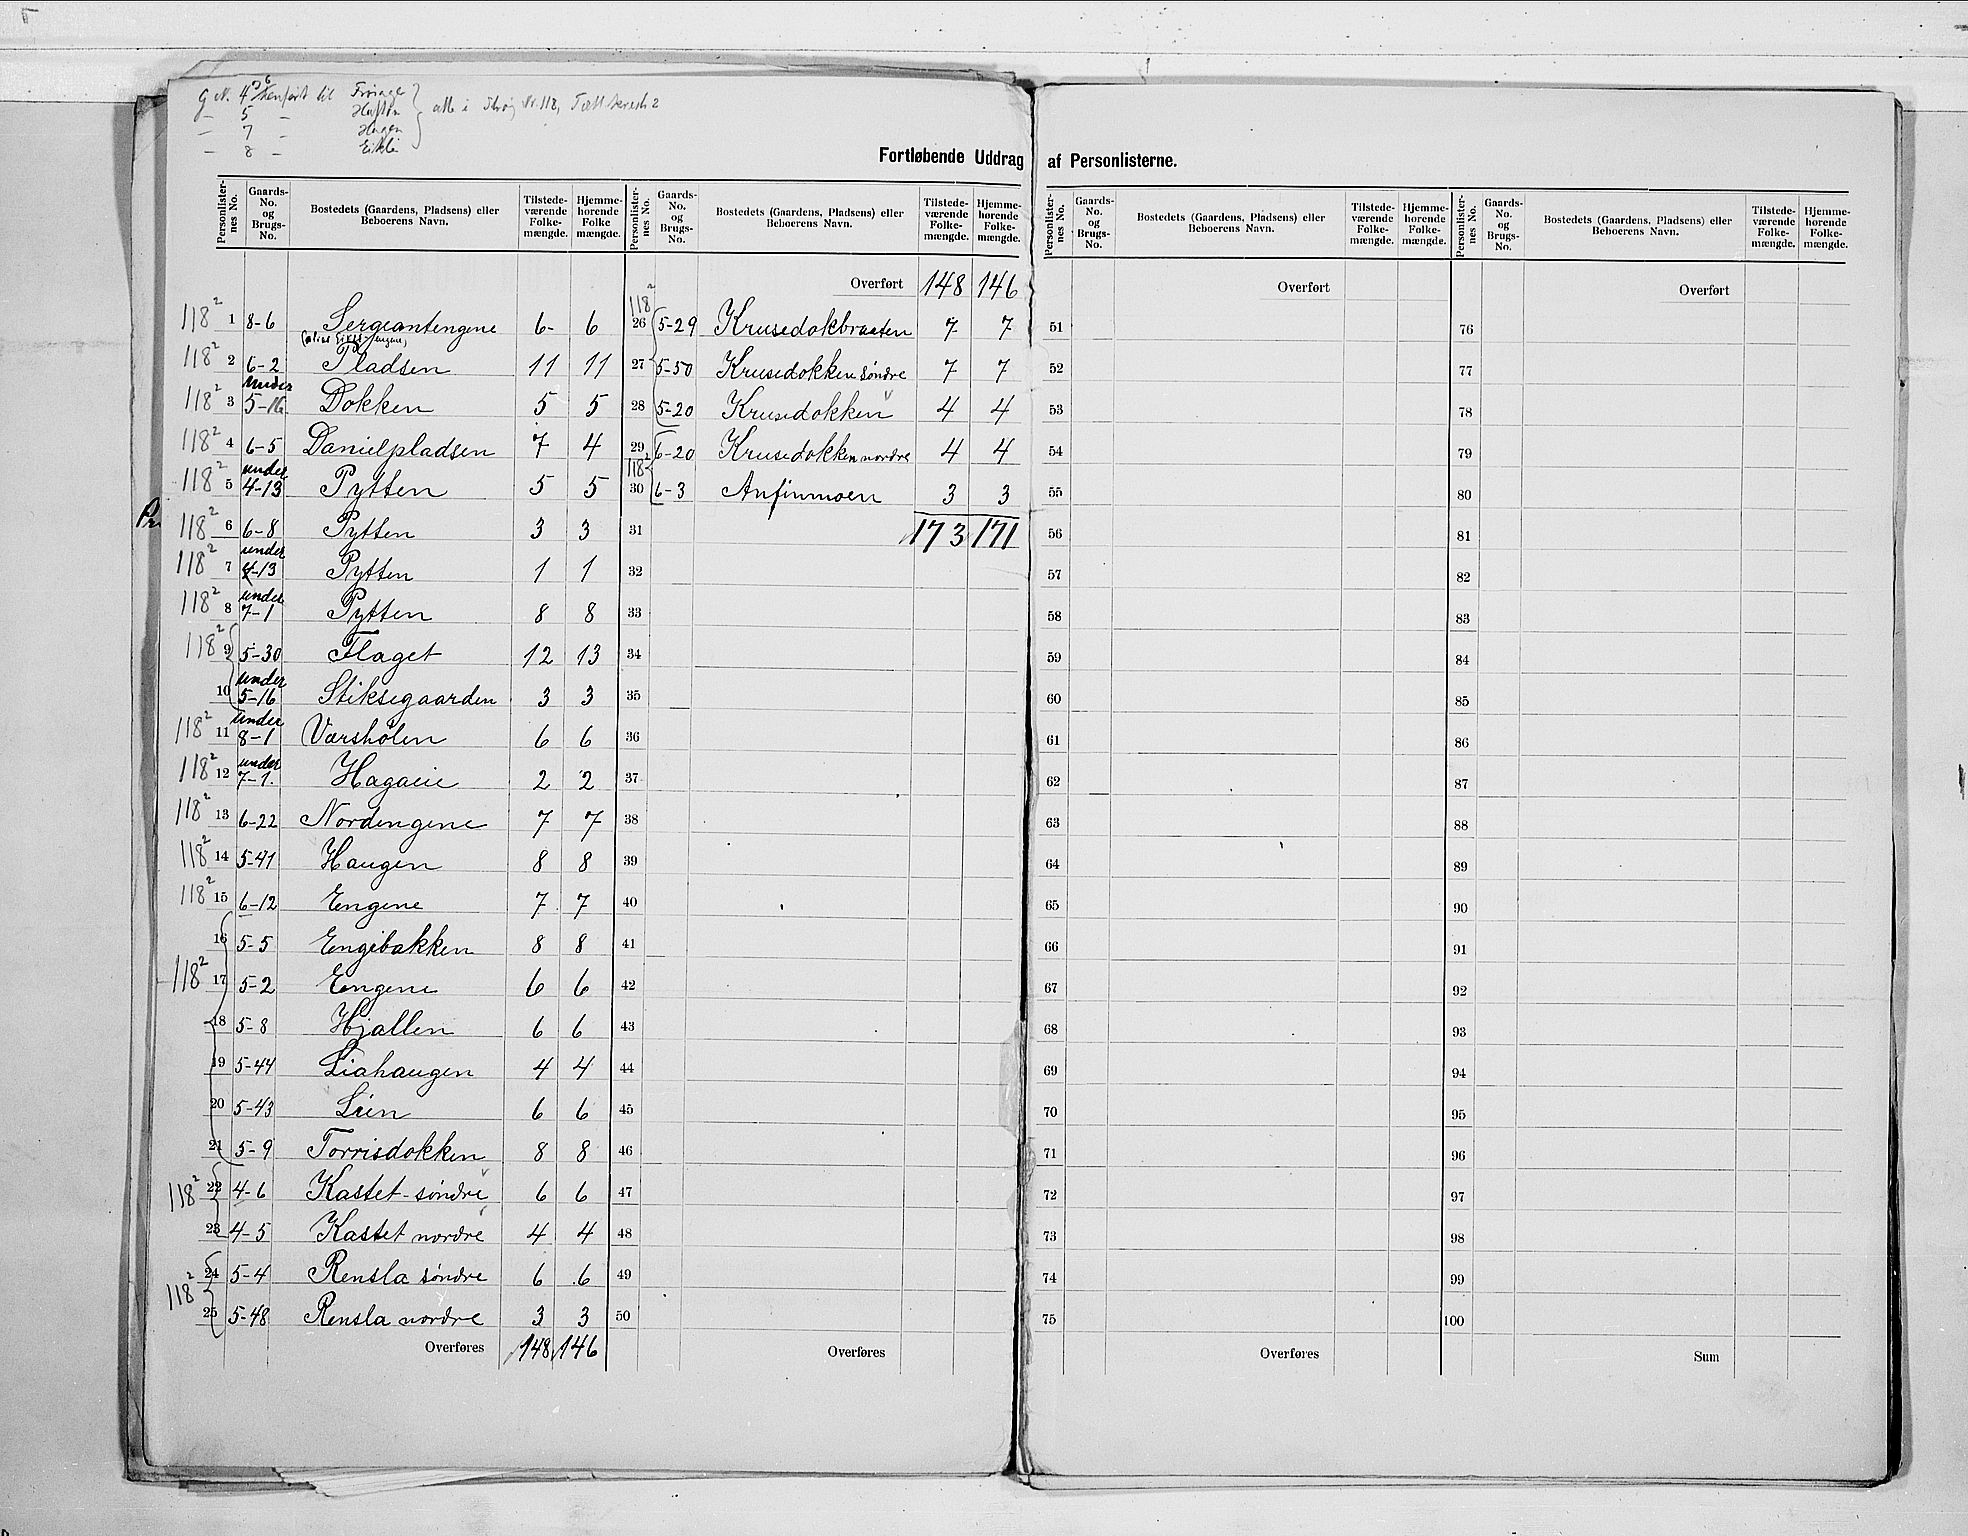 G. N. 4 henført til Frøisge
– 5 – Haften
– 7 – Hagen
– 8 – Eikli
alle i Skog Nr. 118, Tællekreds 2
Fortløbende Uddrag af Personlisterne.
Personlisternes No. | Gaards-No. og Brugs-No. | Bostedets (Gaardens, Pladsens) eller Beboerens Navn. | Tilstedeværende Folkemængde. | Hjemmehørende Folkemængde.
118² 1 | 8-6 | Sergeantengene | 6- | 6
118² 2 | 6-2 | Pladsen | 11 | 11
118² 3 | under 5-16 | Dokken | 5 | 5
118² 4 | 6-5 | Danielpladsen | 7 | 4
118² 5 | under 4-13 | Pytten | 5 | 5
Pr
118² 6 | 6-8 | Pytten | 3 | 3
118² 7 | under 4-13 | Pytten | 1 | 1
118² 8 | under 7-1 | Pytten | 8 | 8
118² 9 | 5-30 | Flaget | 12 | 13
10 | under 5-16 | Stiksegaarden | 3 | 3
118² 11 | under 8-1 | Værshølen | 6 | 6
118² 12 | under 7-1. | Hagaeie | 2 | 2
118² 13 | 6-22 | Nordengene | 7 | 7
118² 14 | 5-41 | Haugen | 8 | 8
118² 15 | 6-12 | Engene | 7 | 7
16 | 5-5 | Engibakken | 8 | 8
118² 17 | 5-2 | Engene | 6 | 6
18 | 5-8 | Hjallen | 6 | 6
19 | 5-44 | Liahaugen | 4 | 4
20 | 5-43 | Lien | 6 | 6
21 | 5-9 | Torrisdokken | 8 | 8
118² 22 | 4-6 | Kastet søndre | 6 | 6
23 | 4-5 | Kastet nordre | 4 | 4
24 | 5-4 | Rensla søndre | 6 | 6
118² 25 | 5-48 | Rensla nordre | 3 | 3
Overføres | 148 | 146
Personlisternes No. | Gaards-No. og Brugs-No. | Bostedets (Gaardens, Pladsens) eller Beboerens Navn. | Tilstedeværende Folkemængde. | Hjemmehørende Folkemængde.
Overført | 148 | 146
118² 26 | 5-29 | Krusedokbraaten | 7 | 7
27 | 5-50 | Krusedokken søndre | 7 | 7
28 | 5-20 | Krusedokken | 4 | 4
29 | 6-20 | Krusedokken nordre | 4 | 4
118² 30 | 6-3 | Anfinmoen | 3 | 3
31 | 173 | 171
32
33
34
35
36
37
38
39
40
41
42
43
44
45
46
47
48
49
50
Overføres
Personlisternes No. | Gaards-No. og Brugs-No. | Bostedets (Gaardens, Pladsens) eller Beboerens Navn. | Tilstedeværende Folkemængde. | Hjemmehørende Folkemængde.
Overført
51
52
53
54
55
56
57
58
59
60
61
62
63
64
65
66
67
68
69
70
71
72
73
74
75
Overføres
Personlisternes No. | Gaards-No. og Brugs-No. | Bostedets (Gaardens, Pladsens) eller Beboerens Navn. | Tilstedeværende Folkemængde. | Hjemmehørende Folkemængde.
Overført
76
77
78
79
80
81
82
83
84
85
86
87
88
89
90
91
92
93
94
95
96
97
98
99
100
Sum